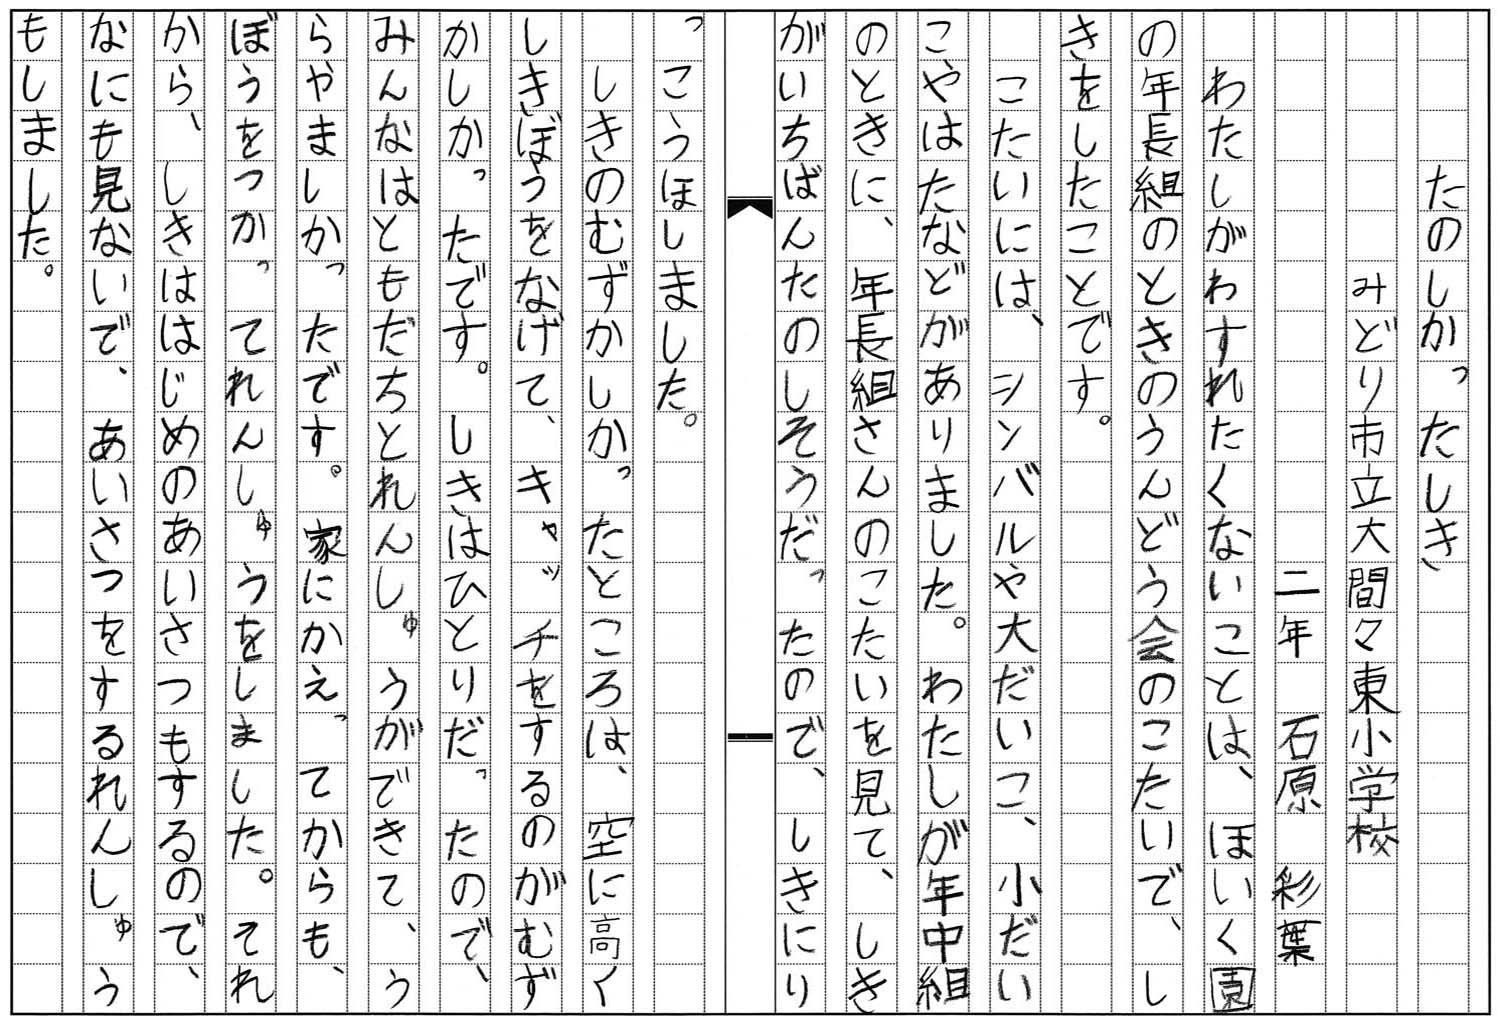 たのしかったしき
みどり市立大間々東小学校
二年　石原　彩葉
わたしがわすれたくないことは、ほいく園
の年長組のときのうんどう会のこたいで、し
きをしたことです。
こたいには、シンバルや大だいこ、小だい
こやはたなどがありました。わたしが年中組
のときに、年長組さんのこたいを見て、しき
がいちばんたのしそうだったので、しきにり
っこうほしました。
しきのむずかしかったところは、空に高く
しきぼうをなげて、キャッチをするのがむず
かしかったです。しきはひとりだったので、
みんなはともだちとれんしゅうができて、う
らやましかったです。家にかえってからも、
ぼうをつかってれんしゅうをしました。それ
から、しきははじめのあいさつもするので、
なにも見ないで、あいさつをするれんしゅう
もしました。